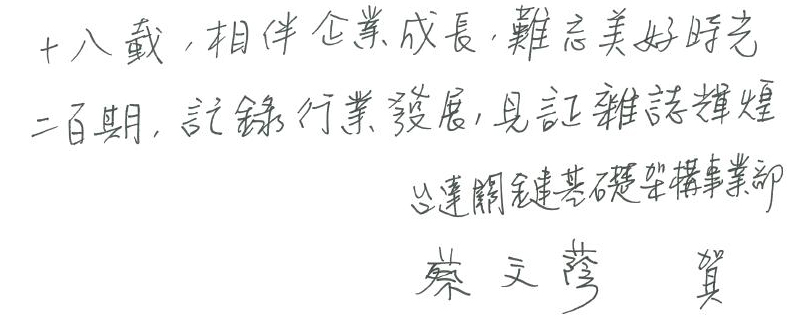 十八載，相伴企業成長，難忘美好時光
二百期，記錄行業發展，見証雜誌輝煌
台達關鍵基礎架構事業部
蔡文蔭 賀